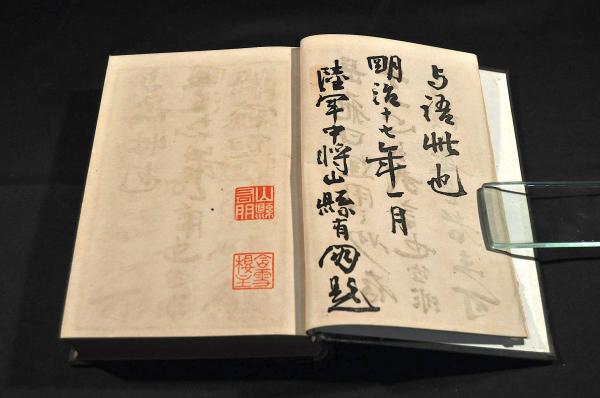 与語此也
明治十七年一月
陸軍中將山縣有朋題
山縣有朋
含雪